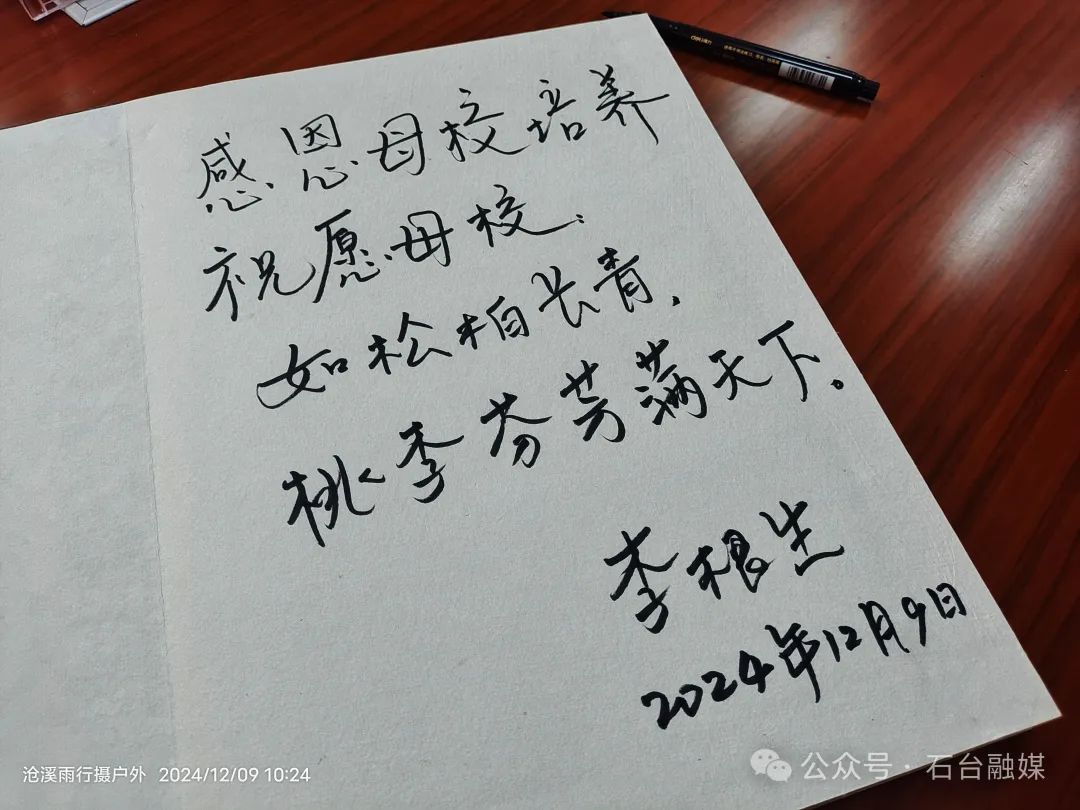 感恩母校培养
祝愿母校:
如松柏长青,
桃李芬芳满天下。
李根生
2024年12月9日
沧溪雨行摄户外 2024/12/09 10:24
公众号·石台融媒